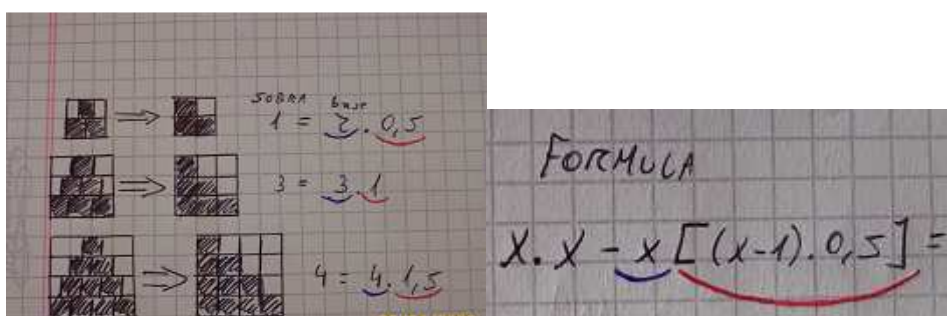 SOBRA base
1 = 2 . 0,5
3 = 3 . 1
4 = 4 . 1,5
FORMULA
X . X - x [(x-1) . 0,5] =